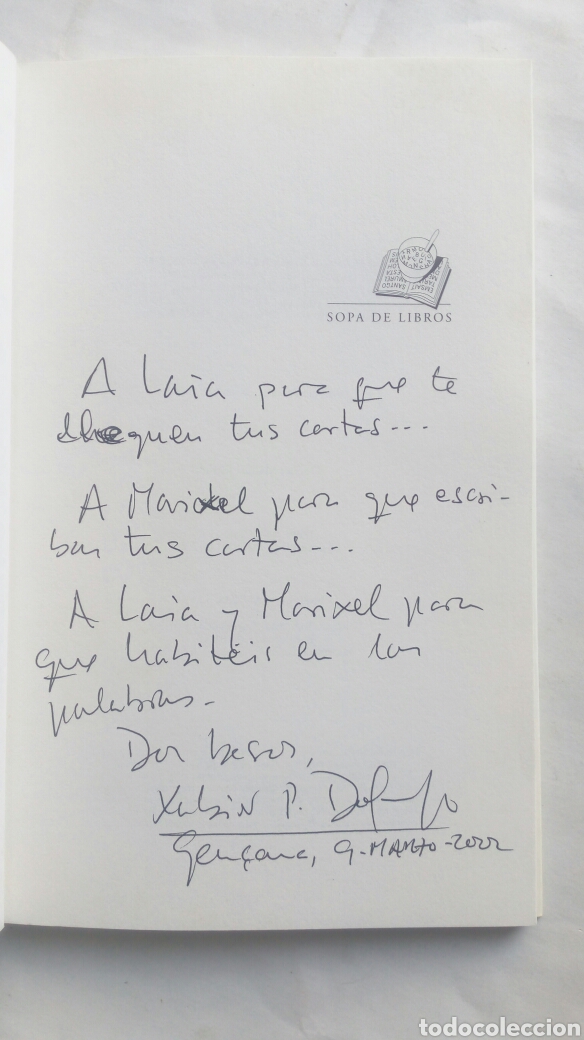 SOPA DE LIBROS
A Laia para que te
lleguen tus cartas...
A Marixel para que escri-
ban tus cartas...
A Laia y Marixel para
que habitéis en las
palabras.
Dos besos,
Xabier P. Docampo
9-MARZO-2002
todocoleccion